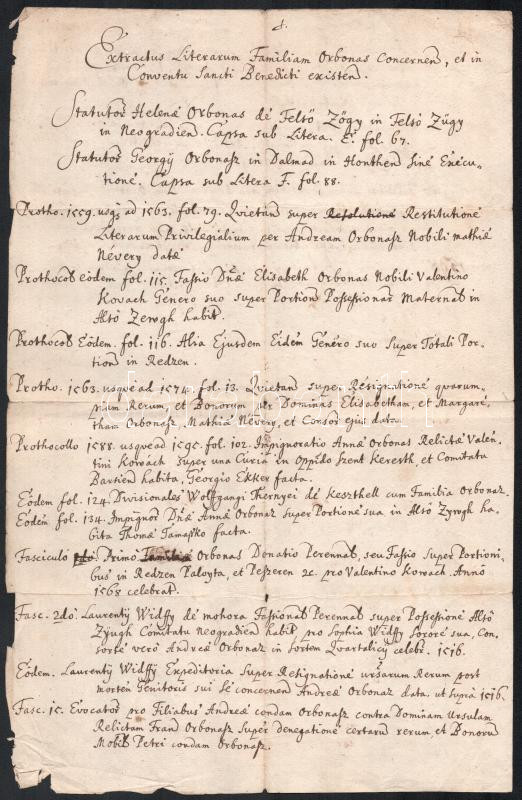 Extractus Literarum Familiam Orbonas Concernen, et in
Conventu Sancti Benedicti existen.
Statutor Helenæ Orbonas de Felsö Zögy in Felsö Zügy
in Neogradien. Capsa sub Litera. E. fol. 67.
Statutor Georgÿ Orbonasz in Dalmad in Honthen sine Execu-
tione. Capsa sub Litera F. fol. 88.
Protho. 1559. usqs ad 1563. fol. 79. Qvietan super Restitutione
Literarum Privilegialium per Andream Orbonasz Nobili mathiæ
Névery datæ
Prothocol eodem fol. 115. Fassio Dnæ Elisabeth Orbonas Nobili Valentino
Kovach Genero suo super Portion Possessionar Maternas in
Alsó Zewgh habit.
Prothocol Eodem. fol. 116. Alia Ejusdem Eidem Genéro suo super Totali Por-
tion in Redzen.
Protho. 1563. usqve ad 1574. fol. 13. Qvietan super Resignatione qvarum-
piam Rerum, et Bonorum per Dominas Elisabetham, et Margare-
tham Orbonasz, Mathiæ Névery, et Consor ejus data.
Prothocollo 1588. usqve ad 1595. fol. 102. Impignoratio Annæ Orbonas Relictæ Valen-
tini Kovách super una Curia in Oppido Szent Kereszth, et Comitatu
Barsien habita, Georgio Ekker facta.
Eodem fol. 124. Divisionales Wolffgangi Thernyei de Keszthell cum Familia Orbonaz.
Eodem fol. 134. Impignor Dnæ Annæ Orbonaz super Portione sua in Alsö Zywgh ha-
bita Thomæ Tamasko facta.
Fasciculo Primo Orbonas Donatio Perennal, seu Fassio super Portioni-
bus in Redzen Paloyta, et Peszeren 2c. pro Valentino Kovach. Anno
1568 celebrat.
Fasc. 2do. Laurentÿ Widffy de mohora Fassional Perennal super Possessione Alsö
Zÿugh Comitatu Neogradien habit pro Sophia Widffy Sorore sua, Con-
sorte vero Andreæ Orbonaz in sortem Qvartalicÿ celebr. 1516.
Eodem. Laurentÿ Widffy Expeditoria super Resignatione Rerum post
mortem Genitoris sui se concernen Andreæ Orbonaz data. ut supra 1516.
Fasc. 15. Evocator pro Filiabus Andreæ condam Orbonasz contra Dominam Ursulam
Relictam Fran Orbonasz super denegatione certarum rerum, et Bonorum
Mobil Petri condam Orbonasz.